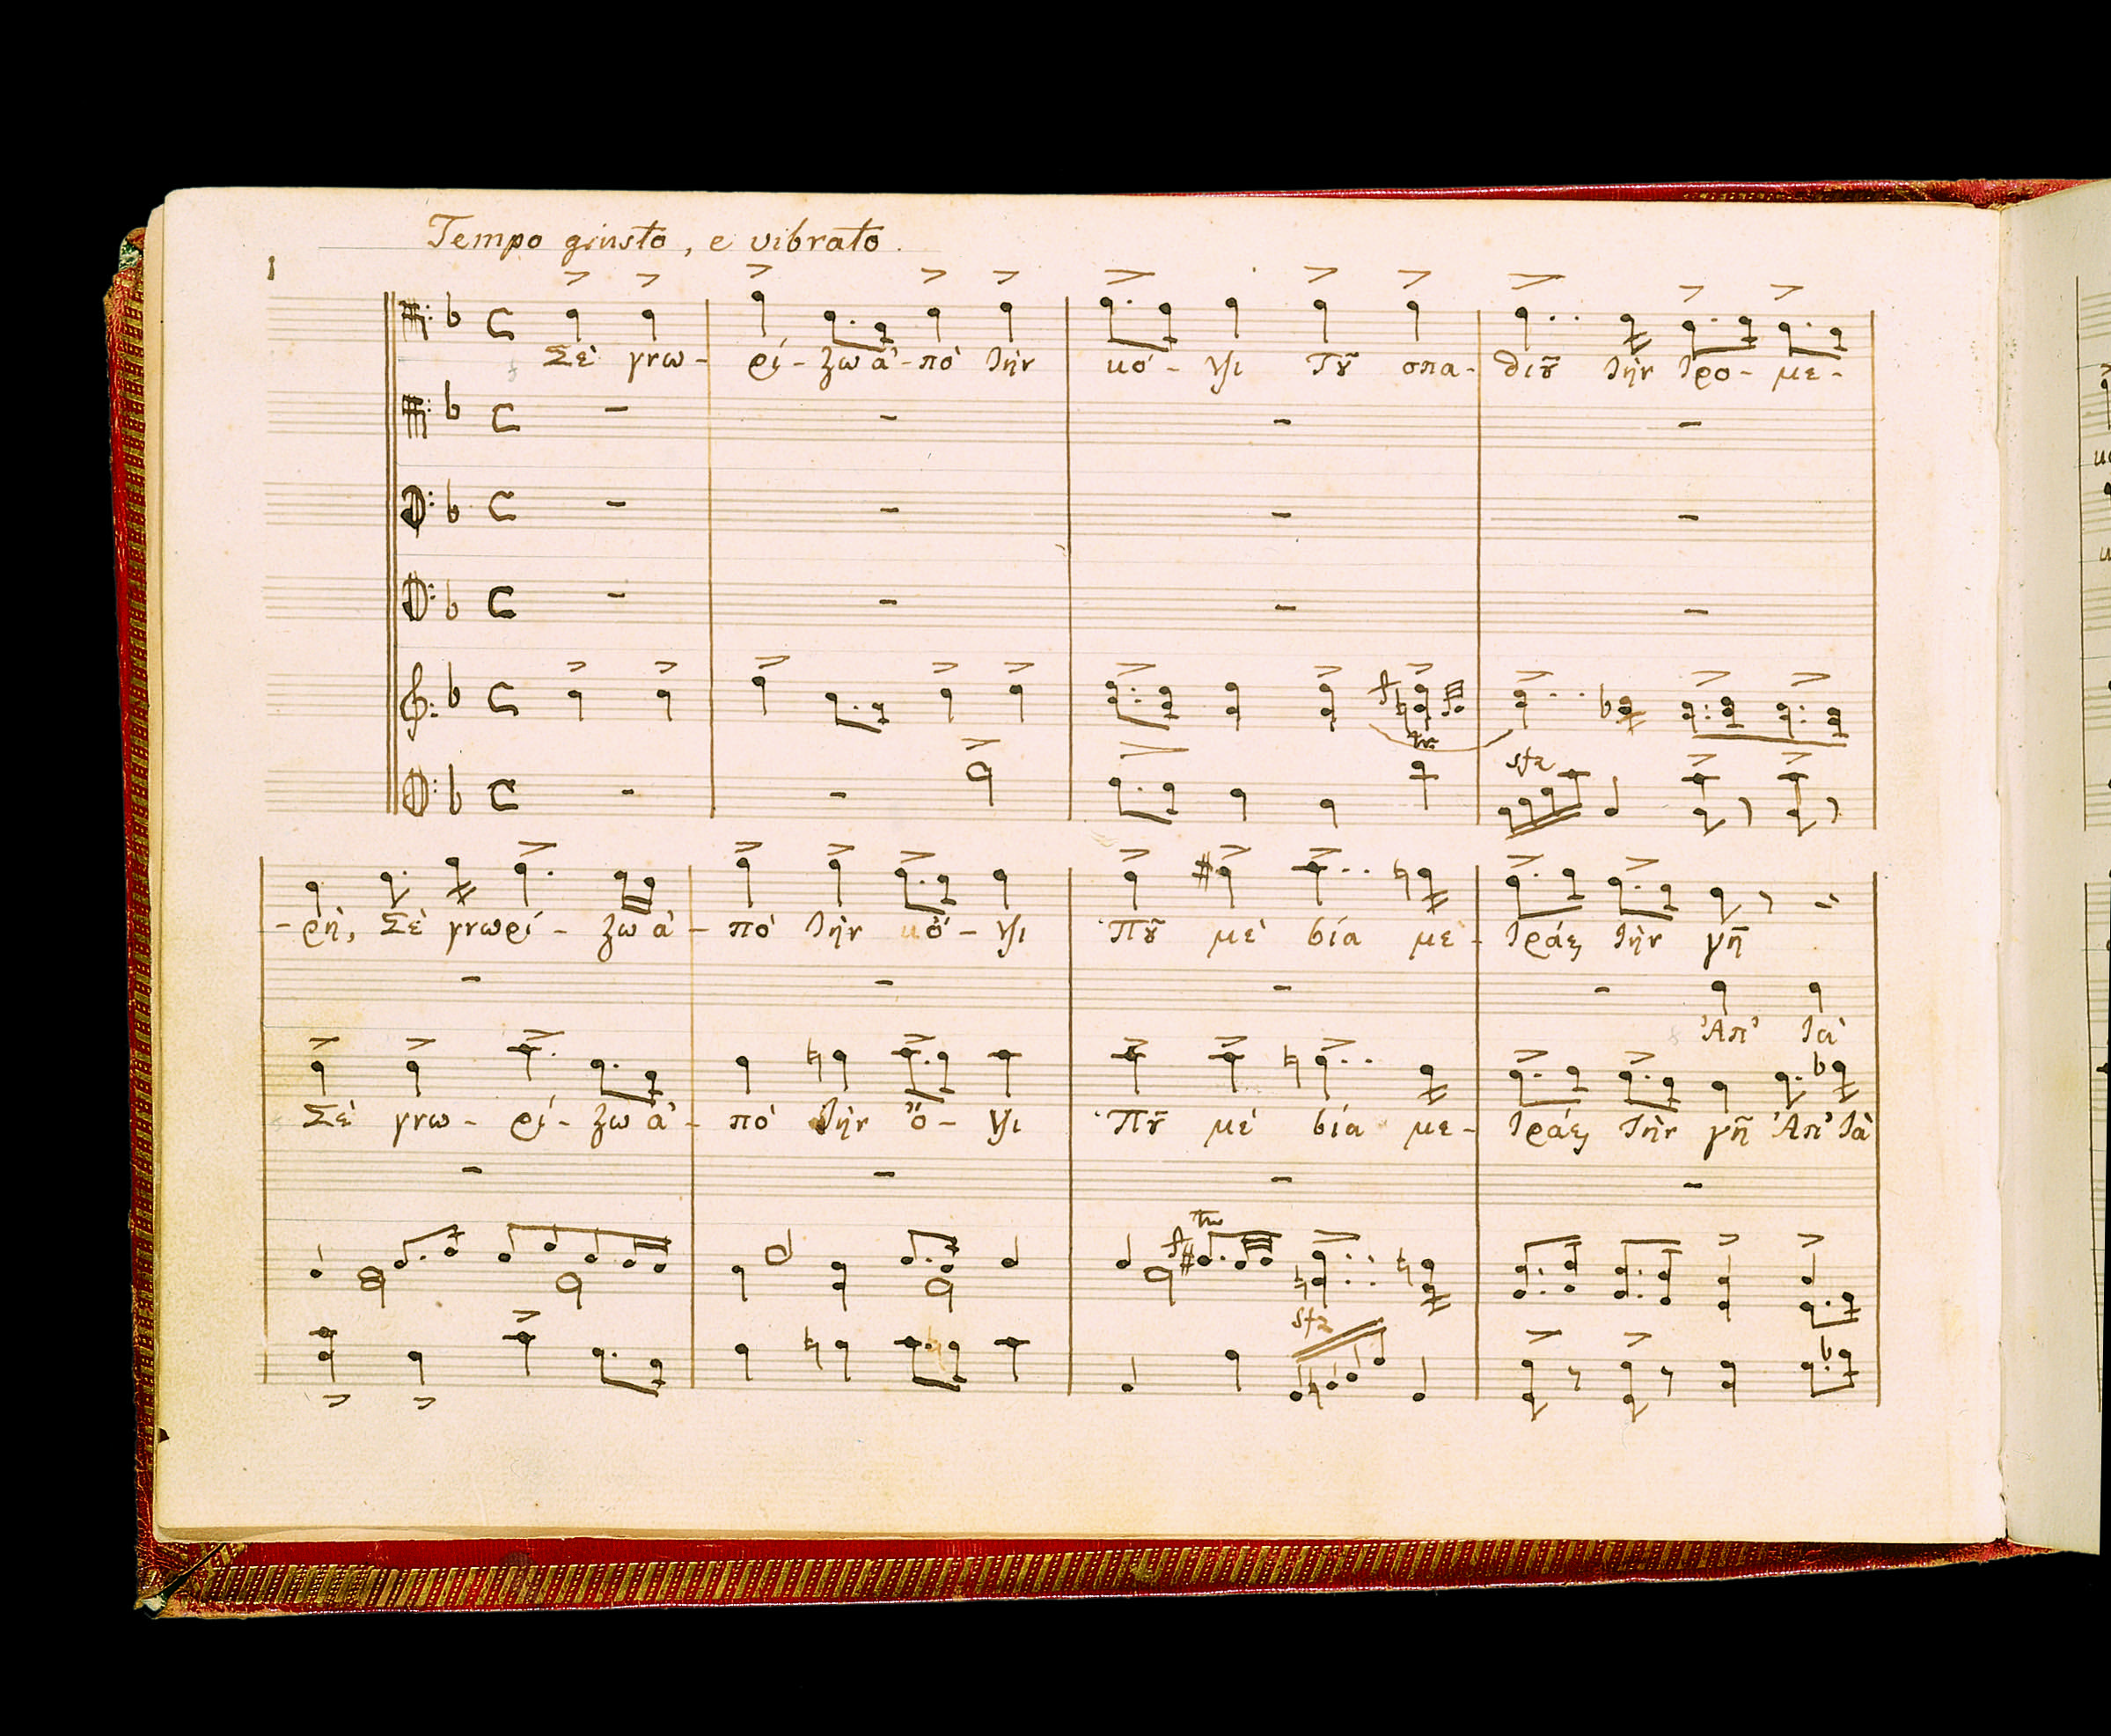 Tempo giusto, e vibrato.
1
Σὲ γνω - ρί - ζω ἀ - πὸ τὴν κό - ψι Τȣ͂ σπα - θιȣ͂ τὴν τρο - με -
tr
sfz
- ρὴ, Σὲ γνωρί - ζω ἀ - πὸ τὴν κὄ - ψι Πȣ͂ μὲ βία με - τράει τὴν γῆ
Ἀπ' τὰ
Σὲ γνω - ρί - ζω ἀ - πὸ τὴν ὄ - ψι Πȣ͂ μὲ βία με - τράει τὴν γῆ Ἀπ' τὰ
tr
sfz